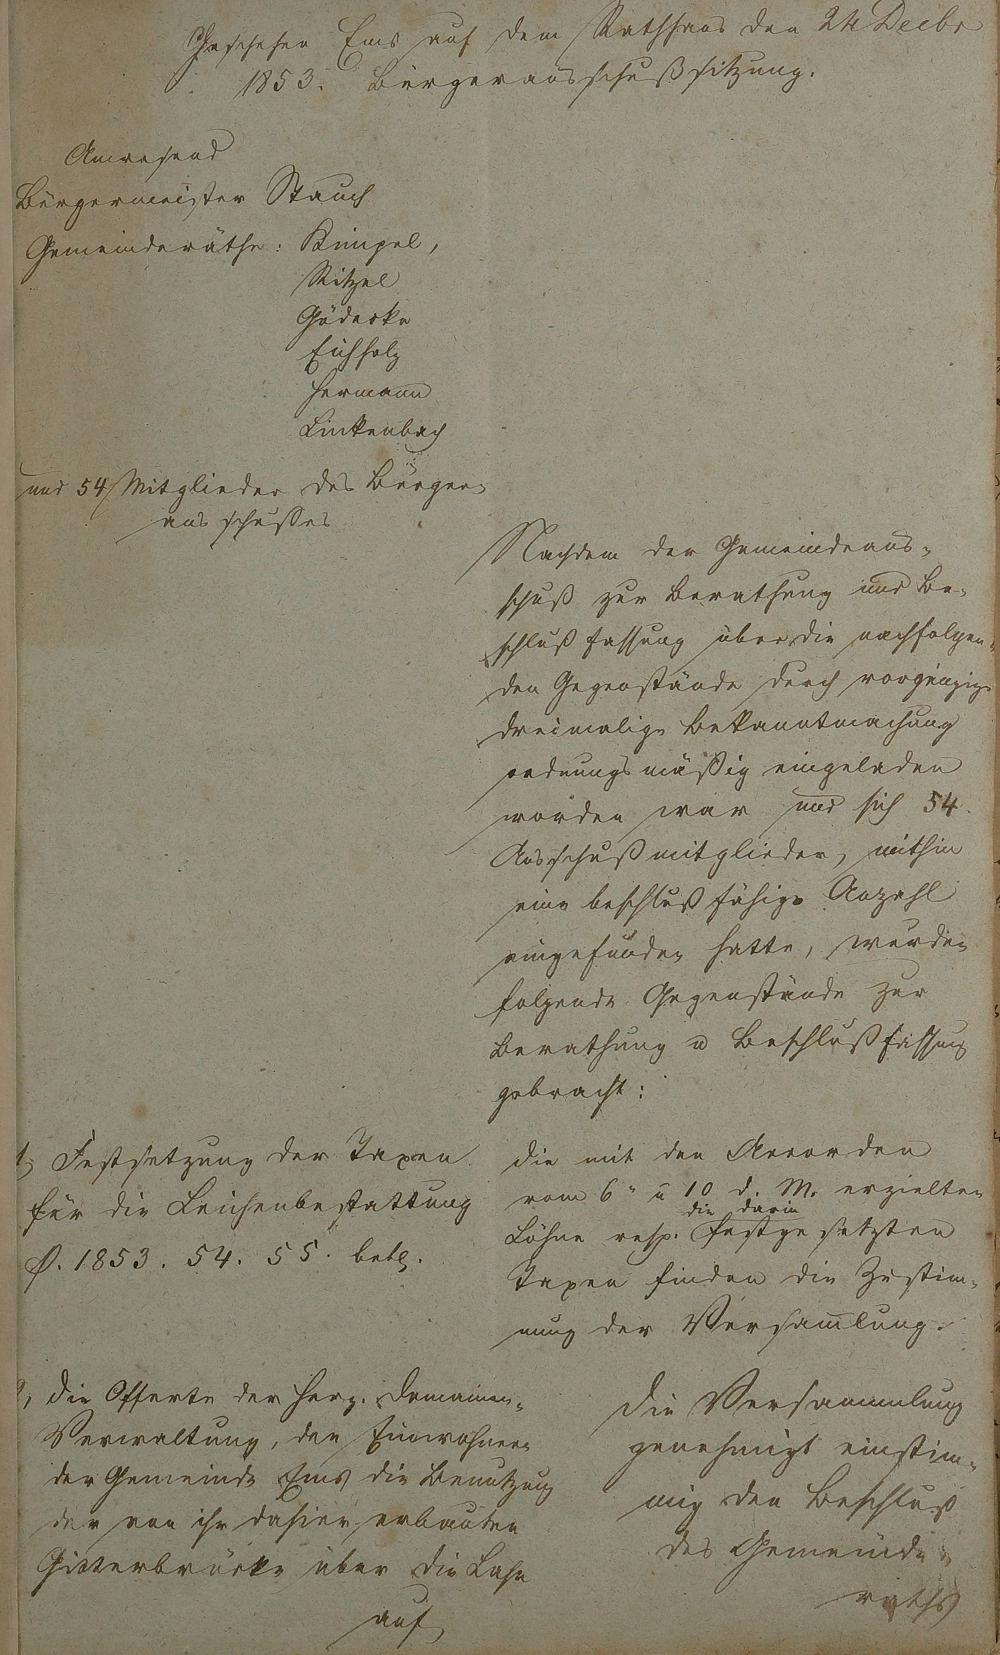 Geschehen Ems auf dem Rathhaus den 24 Decbr
1853. Bürgerausschußsitzung.
Anwesend
Bürgermeister Stauch
Gemeinderäthe: Kimpel,
Ritzel
Gödecke
Eichholz
Hermann
Linkenbach
und 54 Mitglieder des Bürger-
ausschusses
Nachdem der Gemeindeaus-
schuß zur Berathung und Be-
schlußfassung über die nachfolgen-
den Gegenstände durch vorgängige
dreimalige Bekanntmachung
ordnungsmäßig eingeladen
worden war und sich 54
Ausschußmitglieder, mithin
eine beschlußfähige Anzahl
eingefunden hatte, wurden
folgende Gegenstände zur
Berathung u Beschlußfassung
gebracht:
1, Festsetzung der Taxen
für die Leichenbestattung
p. 1853. 54. 55. betr.
Die mit den Accorden
vom 6" u 10 d. M. erzielten
Löhne resp. die darin festgesetzten
Taxen finden die Zustim-
mung der Versamlung.
2, Die Offerte der Herz. Domainen-
Verwaltung, den Einwohnern
der Gemeinde Ems die Benutzung
der von ihr dahier erbauten
Gitterbrücke über die Lahn
auf
Die Versammlung
genehmigt einstim-
mig den Beschluß
des Gemeinde-
raths